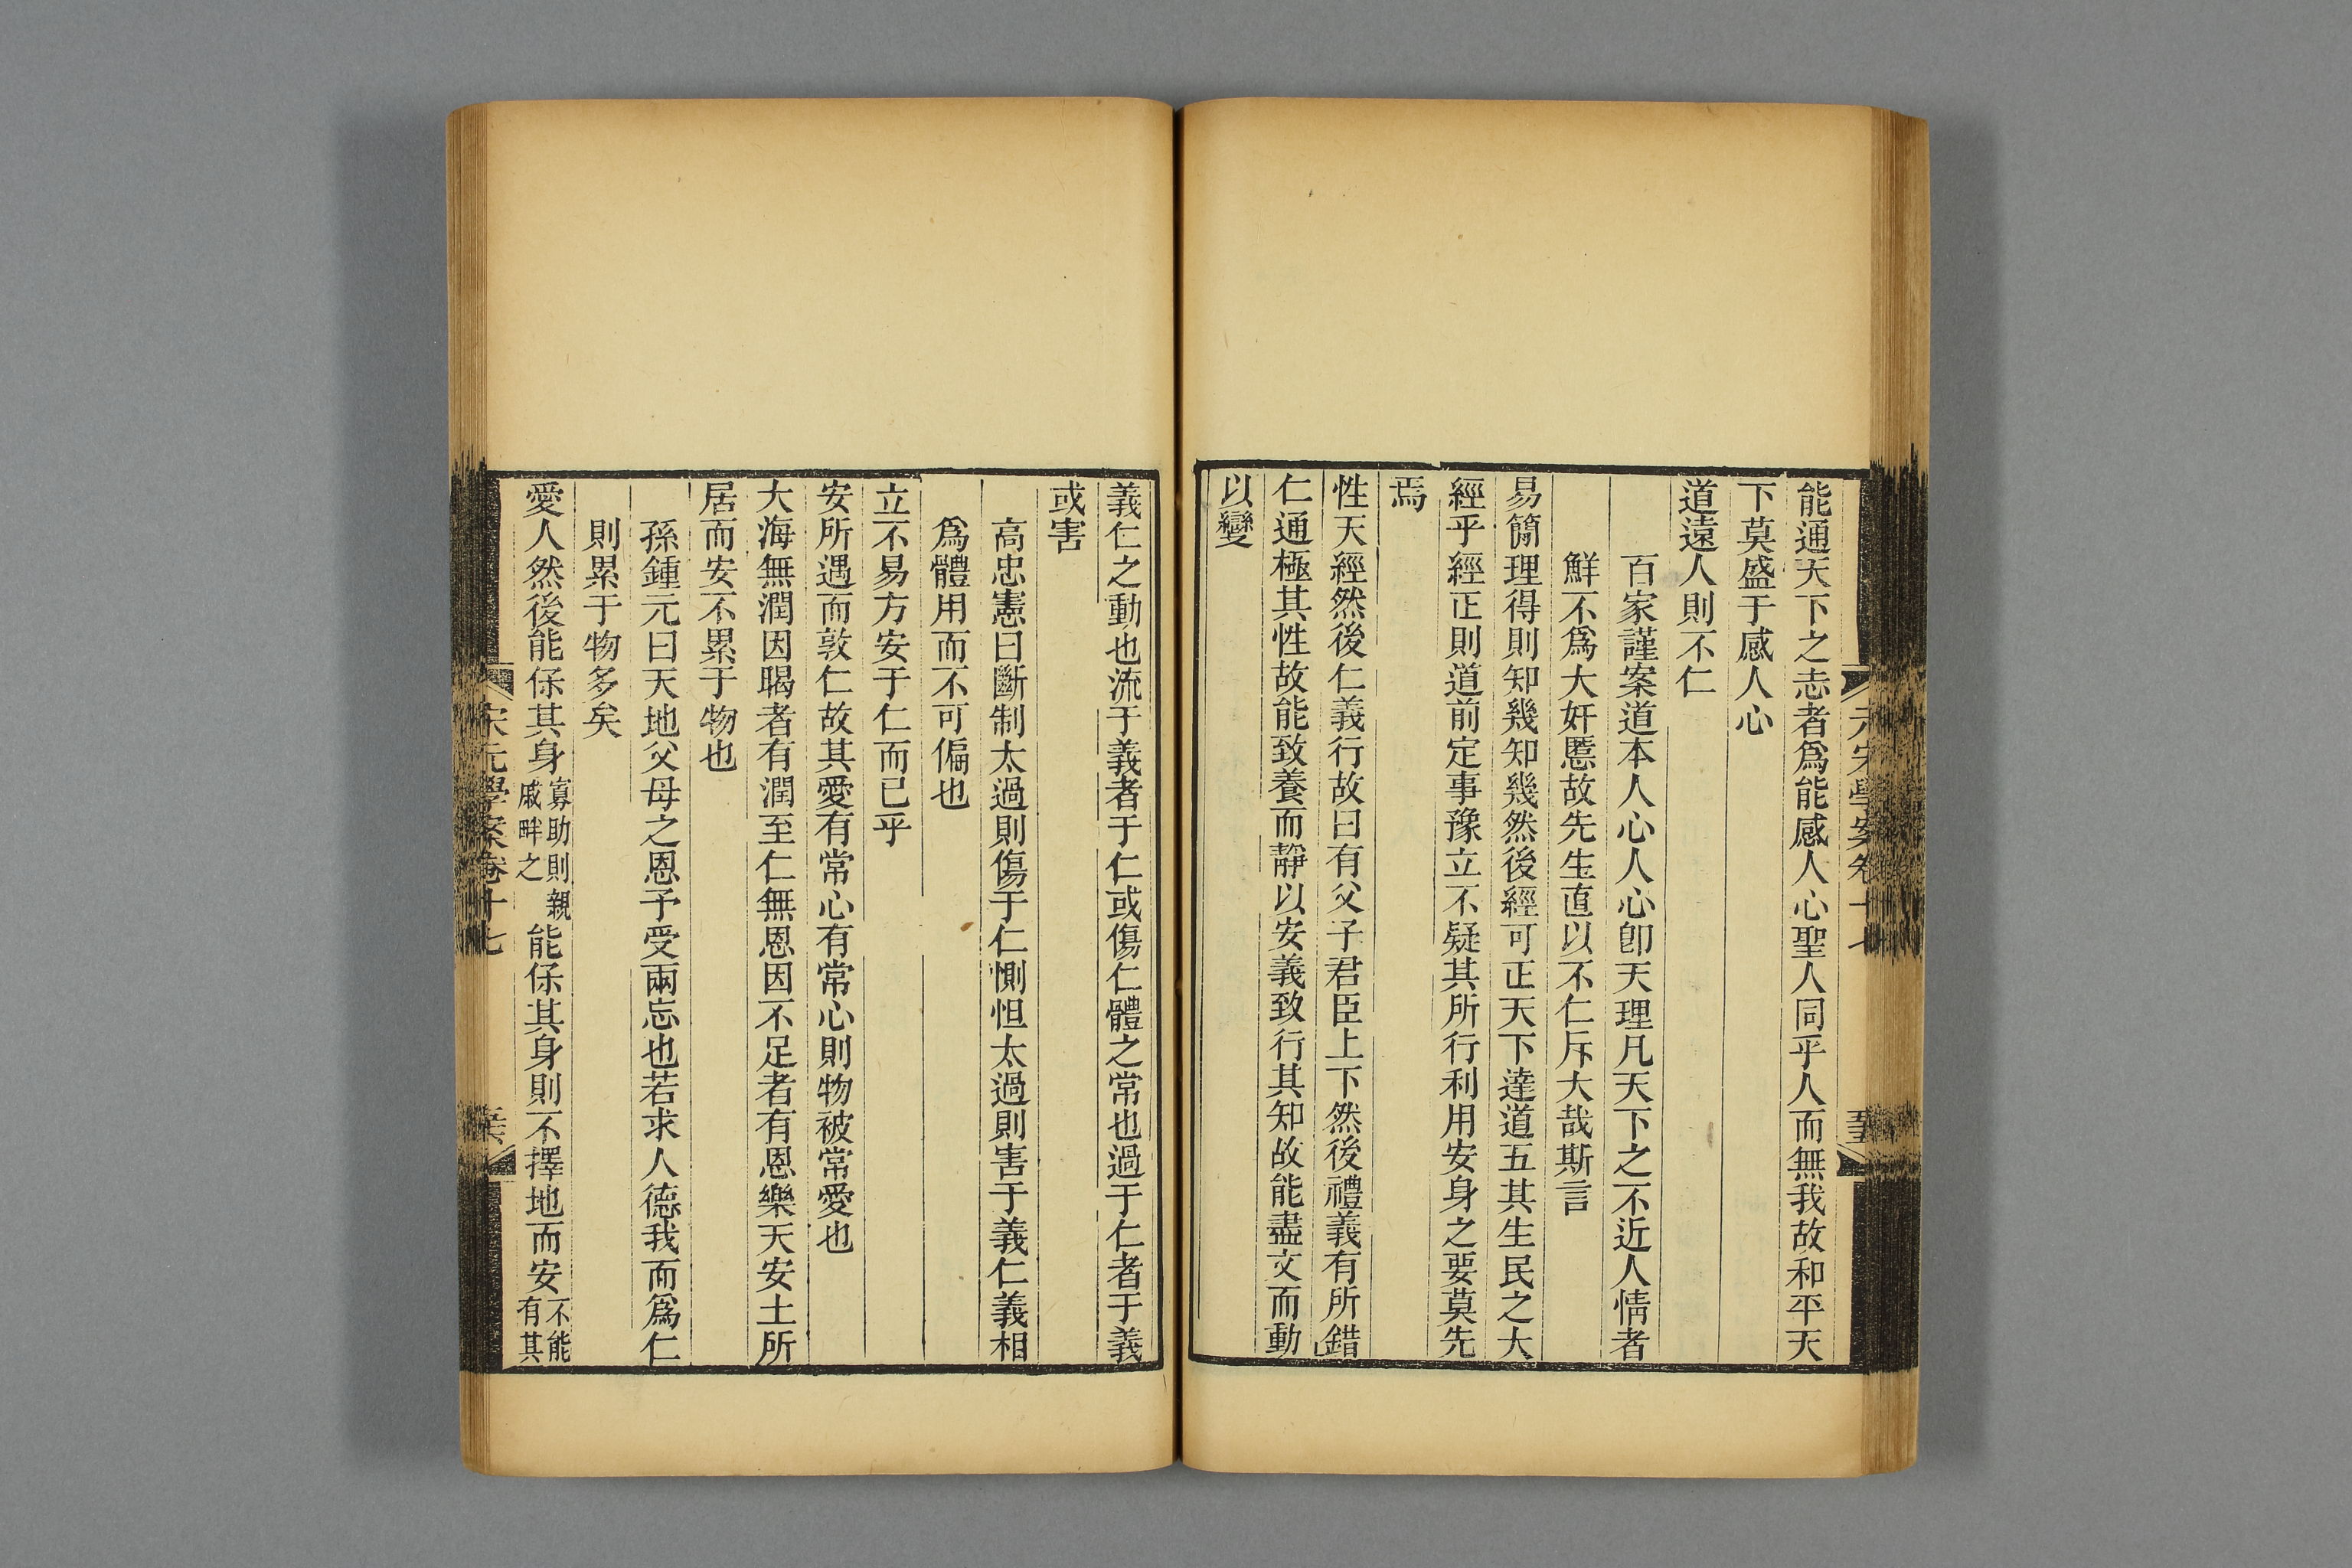 能通天下之志者爲能感人心聖人同乎人而無我故和平天
下莫盛于感人心
道遠人則不仁
百家謹案道本人心人心卽天理凡天下之不近人情者
鮮不爲大奸慝故先生直以不仁斥大哉斯言
易簡理得則知幾知幾然後經可正天下達道五其生民之大
經乎經正則道前定事豫立不疑其所行利用安身之要莫先
焉
性天經然後仁義行故曰有父子君臣上下然後禮義有所錯
仁通極其性故能致養而靜以安義致行其知故能盡文而動
以變
義仁之動也流于義者于仁或傷仁體之常也過于仁者于義
或害
高忠憲曰斷制太過則傷于仁惻怛太過則害于義仁義相
爲體用而不可偏也
立不易方安于仁而已乎
安所遇而敦仁故其愛有常心有常心則物被常愛也
大海無潤因暍者有潤至仁無恩因不足者有恩樂天安土所
居而安不累于物也
孫鍾元曰天地父母之恩予受兩忘也若求人德我而爲仁
則累于物多矣
愛人然後能保其身寡助則親戚畔之能保其身則不擇地而安不能有其
宋元學案卷十七